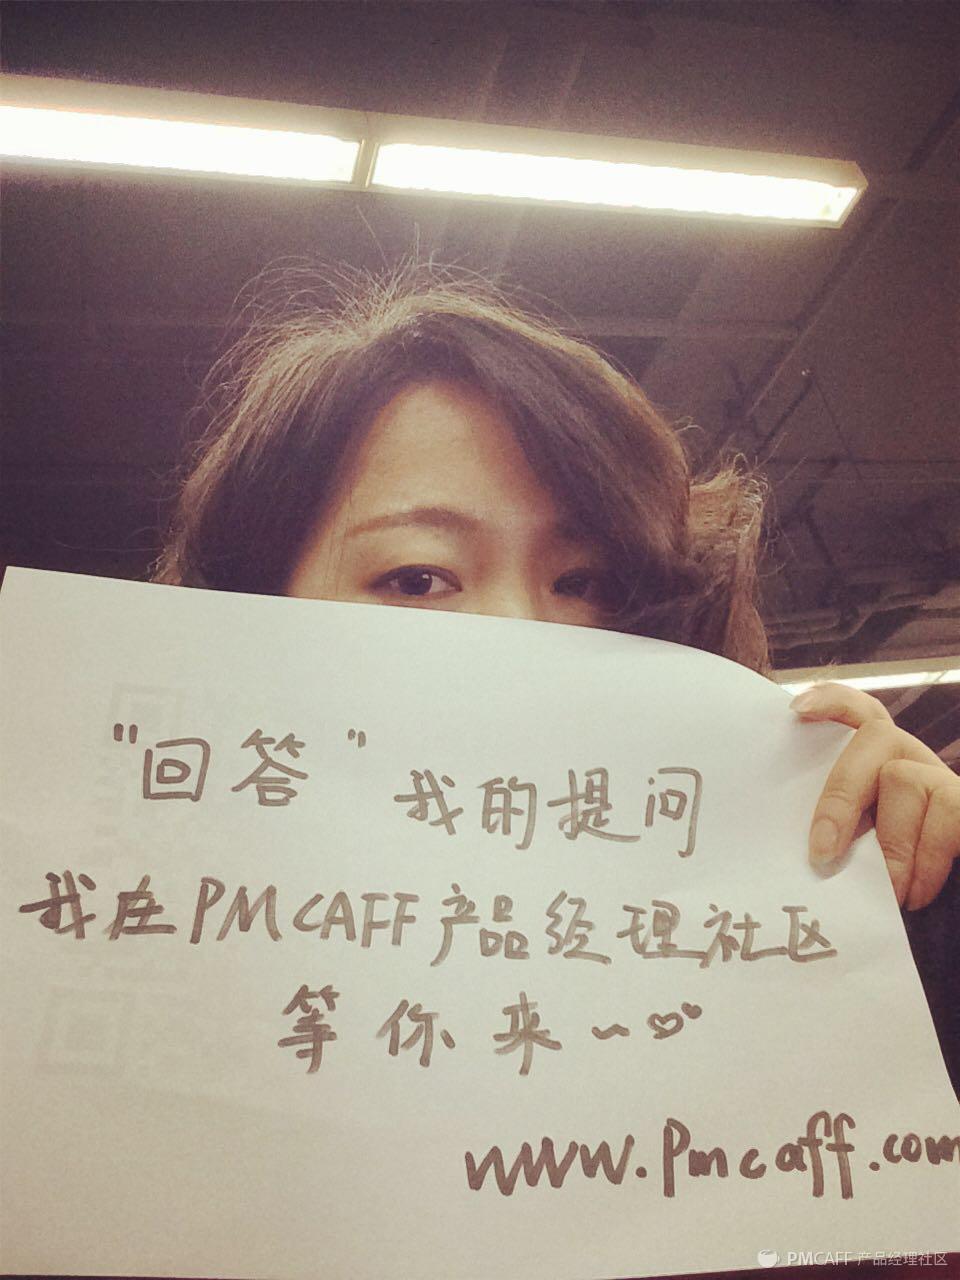 "回答"我的提问
我在PMCAFF产品经理社区
等你来~♡♡
www.pmcaff.com
PMCAFF 产品经理社区